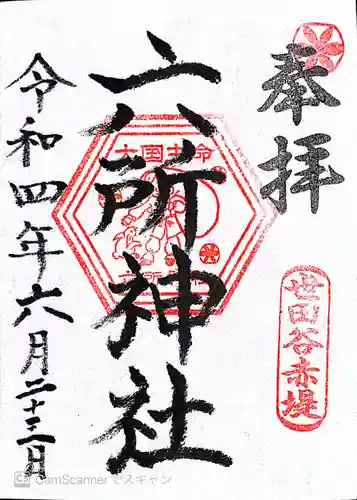 奉拝
世田谷赤堤
六所神社
大国主命
六所
令和四年六月二十三日
CS CamScannerでスキャン